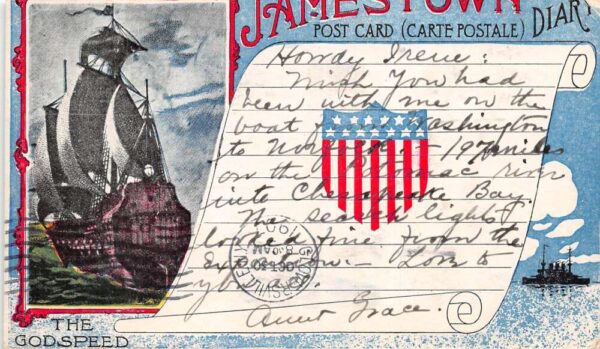 JAMESTOWN
POST CARD (CARTE POSTALE) DIARY
Howdy Irene:
Wish You had
been with me on the
boat Washington
to Norfolk - 197 miles
on the Potomac river
into Chesapeake Bay.
The search lights
looked fine from the
Love to
Aunt Grace.
THE
GODSPEED